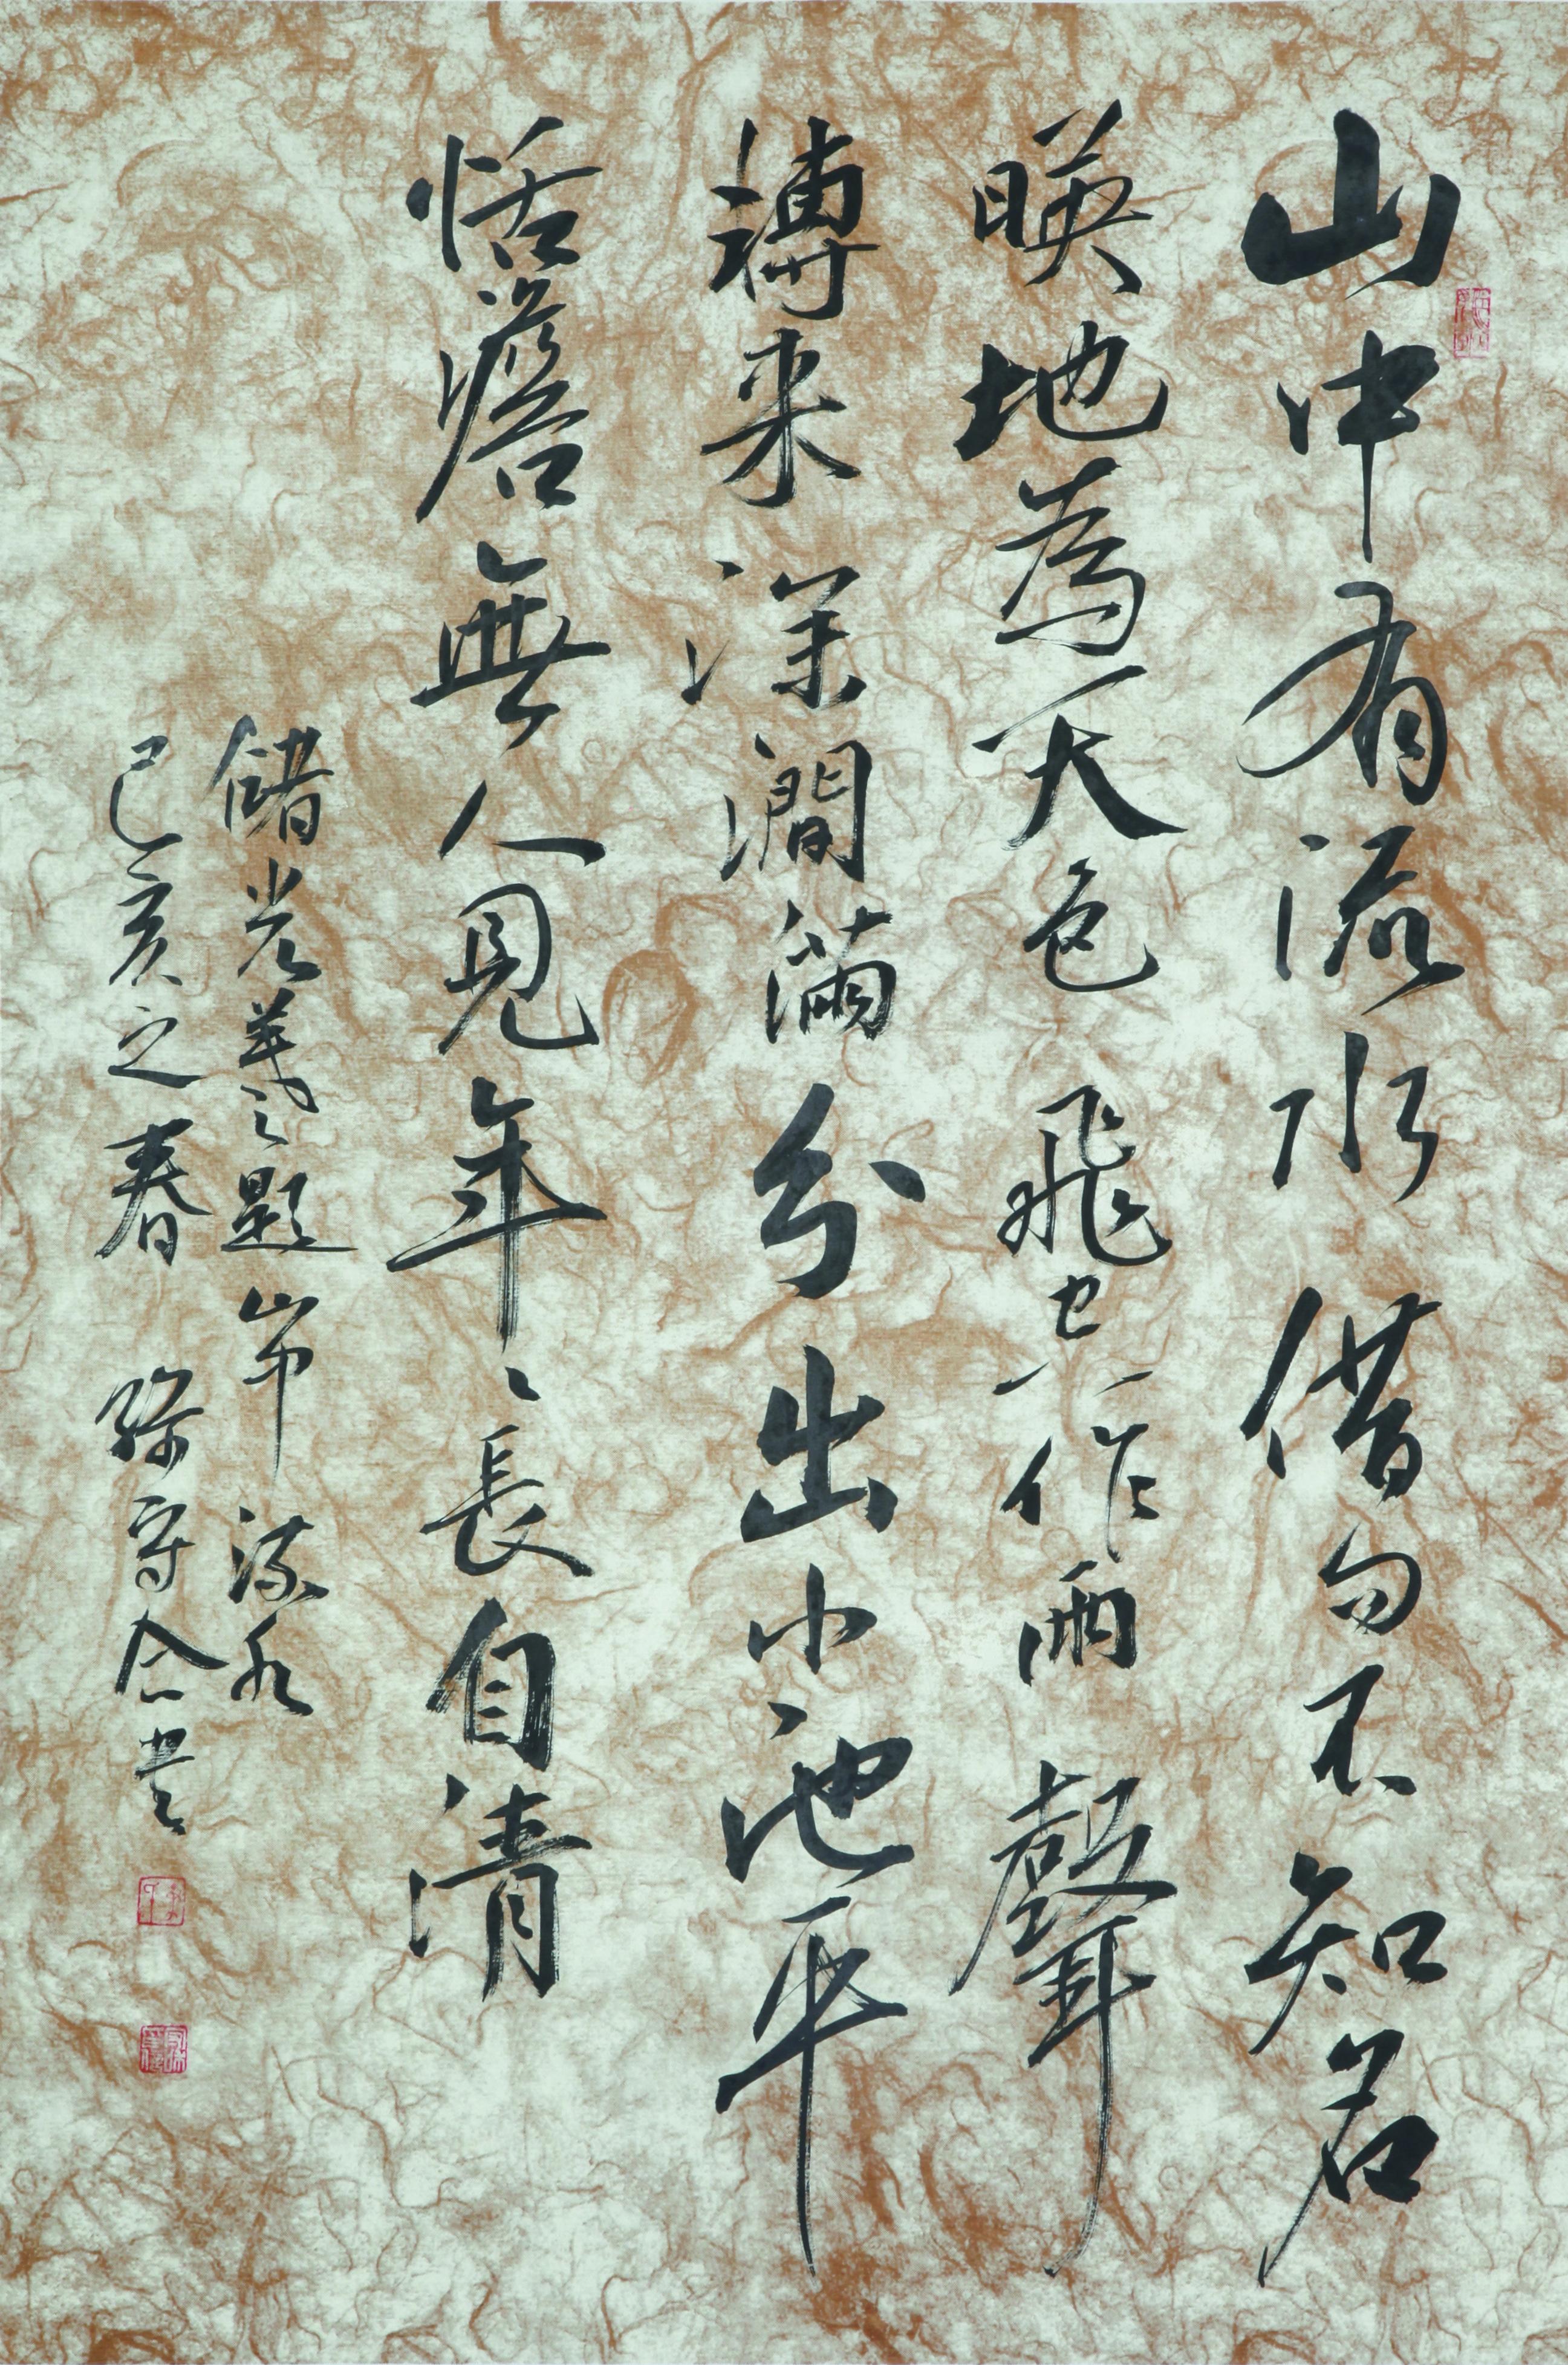 山中有流水借問不知名
暎地為天色飛空作雨聲
轉来深澗滿分出小池平
恬澹無人見年、長自清
儲光羲之題山中流水
己亥之春 孫守書